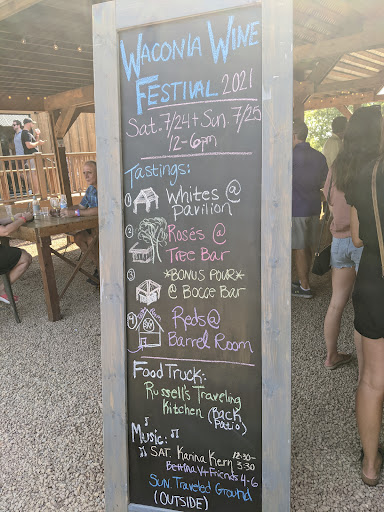 Waconia Wine
Festival 2021
Sat. 7/24 + Sun. 7/25
12-6pm
Tastings:
① Whites @
Pavilion
② Rosés @
Tree Bar
③ *Bonus Pour*
@ Bocce Bar
④ Reds @
Barrel Room
Food Truck:
Russell's Traveling
Kitchen (Back
Patio)
Music:
Sat. Karina Kern 12:30-
3:30
Bettina V + Friends 4-6
Sun. Traveled Ground
(Outside)